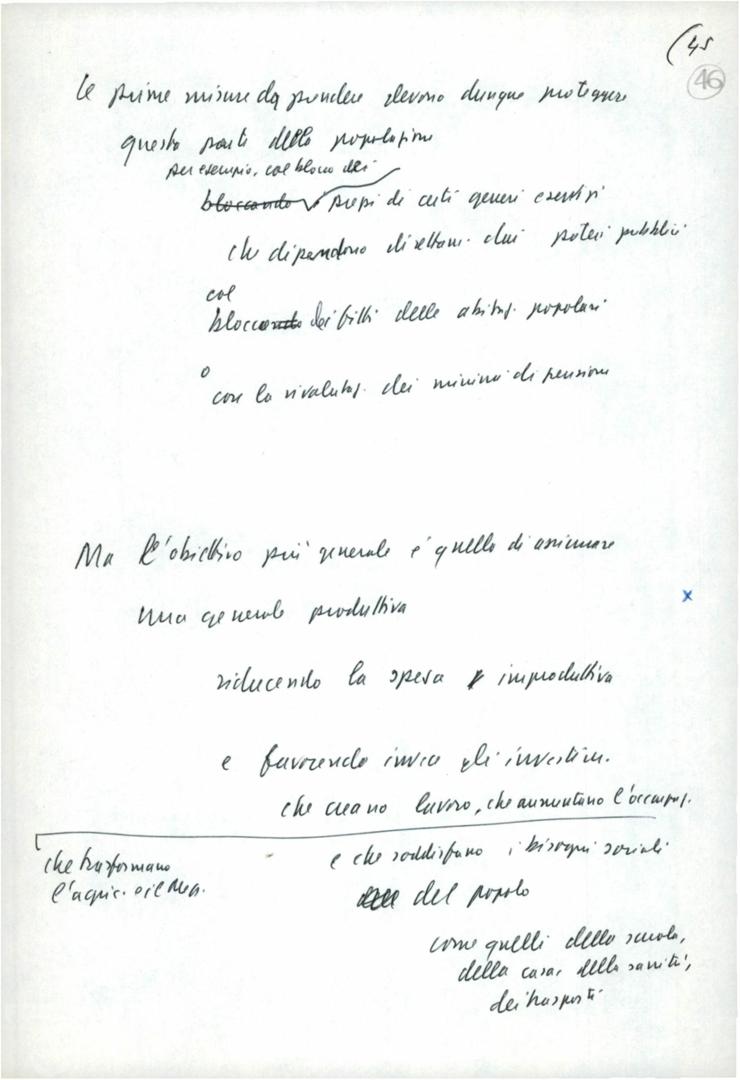 (45
46
le prime misure da prendere devono dunque proteggere
questa parte della popolazione
per esempio, col blocco dei
bloccando i prezzi di certi generi essenziali
che dipendono direttam. dai poteri pubblici
col
bloccando dei fitti delle abitaz. popolari
o
con la rivalutaz. dei minimi di pensione
Ma l'obiettivo più generale è quello di assicurare
una generale produttiva
x
riducendo la spesa improduttiva
e favorendo invece gli investim.
che creano lavoro, che aumentano l'occupaz.
che trasformano
l'agric. e il Mezz.
e che soddisfano i bisogni sociali
del popolo
come quelli della scuola,
della casa, della sanità,
dei trasporti